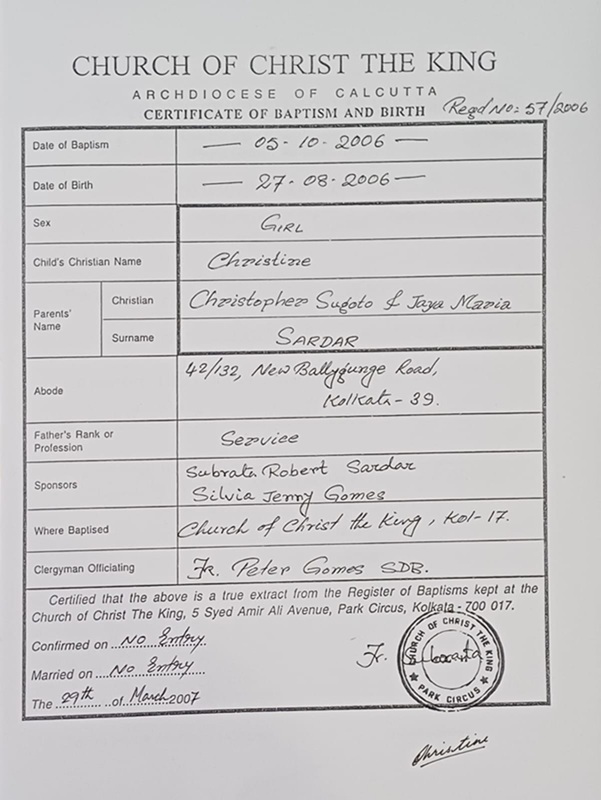 CHURCH OF CHRIST THE KING
ARCHDIOCESE OF CALCUTTA
CERTIFICATE OF BAPTISM AND BIRTH Regd No: 57/2006
Date of Baptism — 05-10-2006 —
Date of Birth — 27-08-2006 —
Sex GIRL
Child's Christian Name Christine
Parents' Name Christian Christopher Sugoto & Jaya Maria
Surname SARDAR
Abode 42/132, New Ballygunge Road,
Kolkata-39.
Father's Rank or Profession Service
Sponsors Subrata Robert Sardar
Silvia Jenny Gomes
Where Baptised Church of Christ the King, Kol-17.
Clergyman Officiating Fr. Peter Gomes SDB.
Certified that the above is a true extract from the Register of Baptisms kept at the
Church of Christ The King, 5 Syed Amir Ali Avenue, Park Circus, Kolkata - 700 017.
Confirmed on No Entry
Married on No Entry
The 29th of March 2007
Fr.
CHURCH OF CHRIST THE KING
PARK CIRCUS
Christine